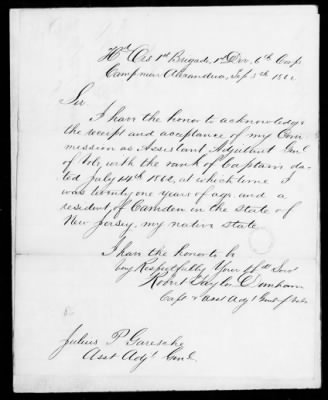 Hd Qrs 1st Brigade, 1st Div. 6th Corps
Camp near Alexandria, Sep 5th 1862
Sir.
I have the honor to acknowledge
the receipt and acceptance of my Com
mission as Assistant Adjutant Genl
of Vols, with the rank of Captain da-
ted July 14th 1862, at which time I
was twenty one years of age and a
resident of Camden in the State of
New Jersey, my native State
I have the honor to be
Very Respectfully Your Obt Svt
Robert Taylor Dunham
Capt & Asst Adjt Genl of Vols
Julius P. Garesche
Asst Adjt Genl